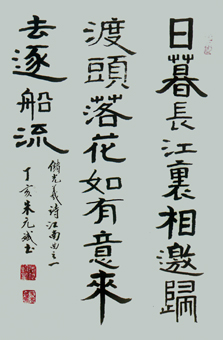 日暮長江裏相邀歸
渡頭落花如有意來
去逐船流
儲光羲诗江南曲之一
丁亥朱元斌书